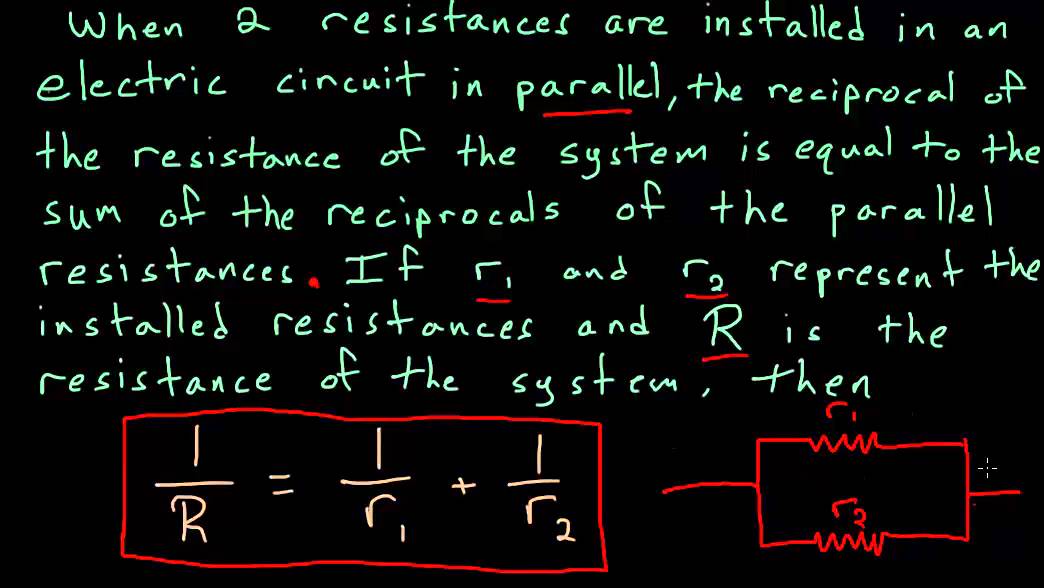 When 2 resistances are installed in an
electric circuit in parallel, the reciprocal of
the resistance of the system is equal to the
sum of the reciprocals of the parallel
resistances. If r₁ and r₂ represent the
installed resistances and R is the
resistance of the system, then
1/R = 1/r₁ + 1/r₂
r₁
r₂